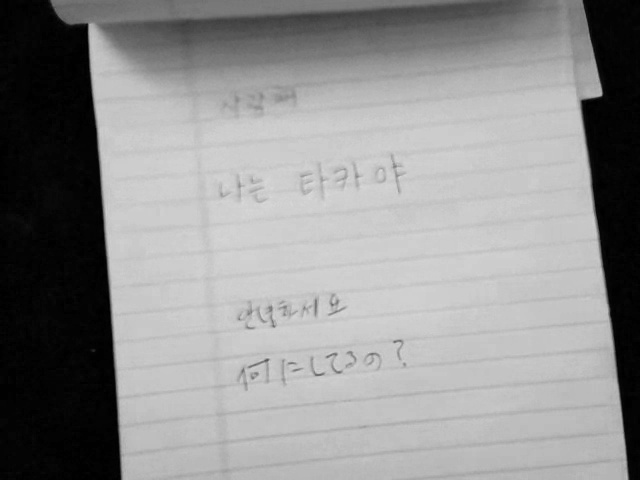 사랑해
나는 타카야
안녕하세요
何にしてるの?